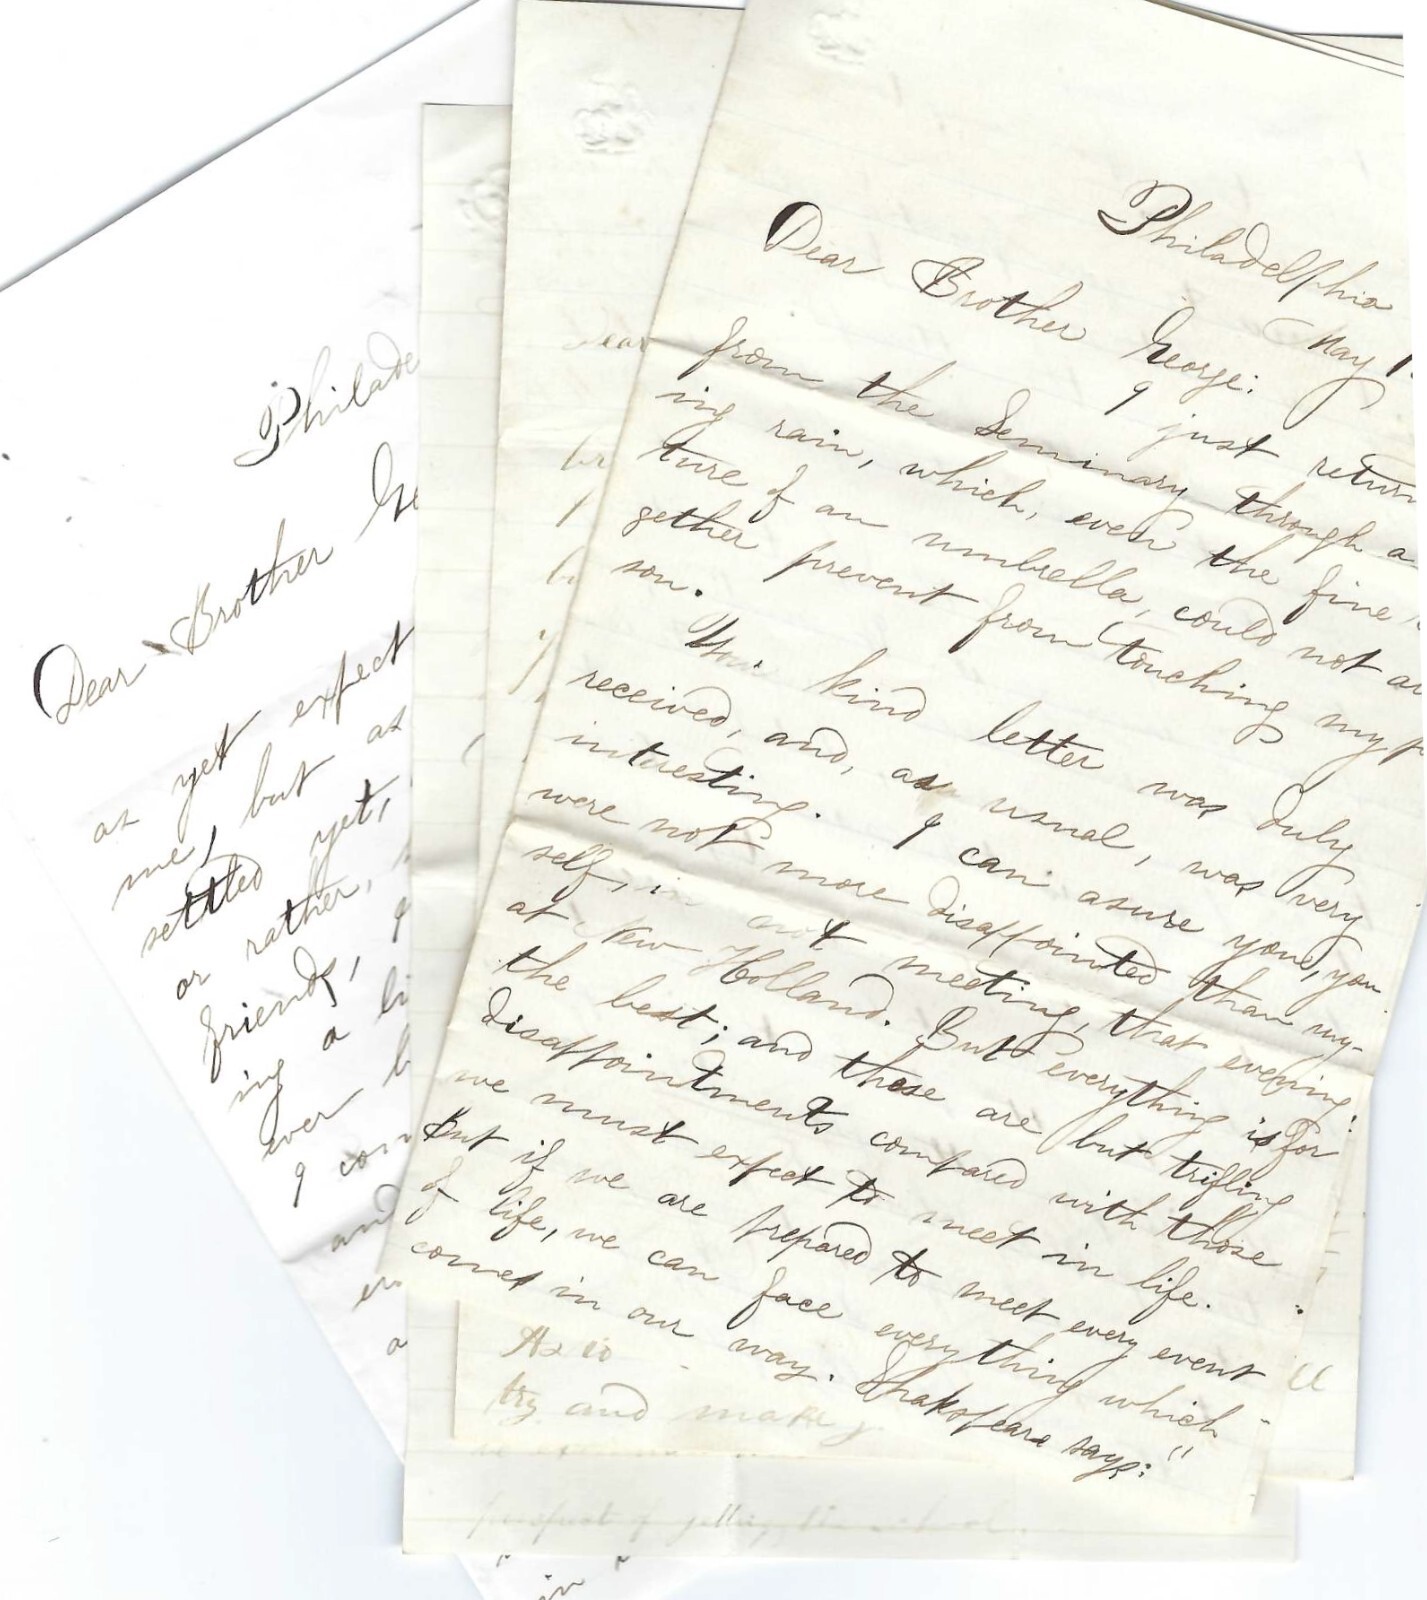 Philadelphia
May 1
Dear Brother George:
I just return
from the Seminary through a
ing rain, which, even the fine
ture of an umbrella, could not al
gether prevent from touching my p
son.
Your kind letter was duly
received, and, as usual, was very
interesting. I can asure you, you
were not more disappointed than my-
self, in not meeting, that evening
at New Holland. But everything is for
the best; and these are but trifling
disappointments compared with those
we must expect to meet in life.
But if we are prepared to meet every event
of life, we can face everything which
comes in our way. Shakspeare says: "
Philade
Dear Brother Ge
as yet expect
me, but as
settled yet,
or rather,
friends, I
ing a li
ever b
I con
and
en
a
Dear
br
As to
try and make
prospect of getting the school
in